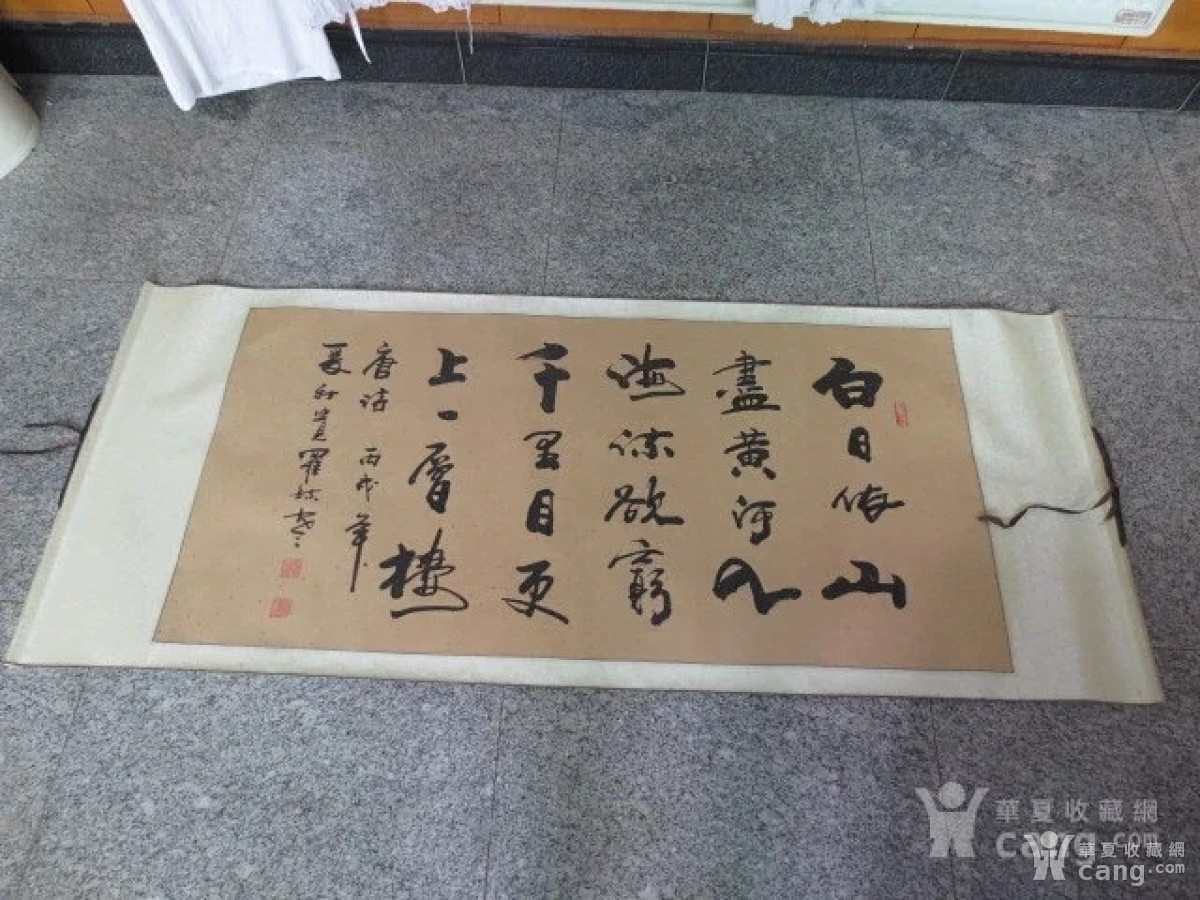 白日依山
盡黄河入
海流欲窮
千里目更
上一層樓
唐詩 丙戌年
夏
華夏收藏網
cang.com
華夏收藏網
cang.com